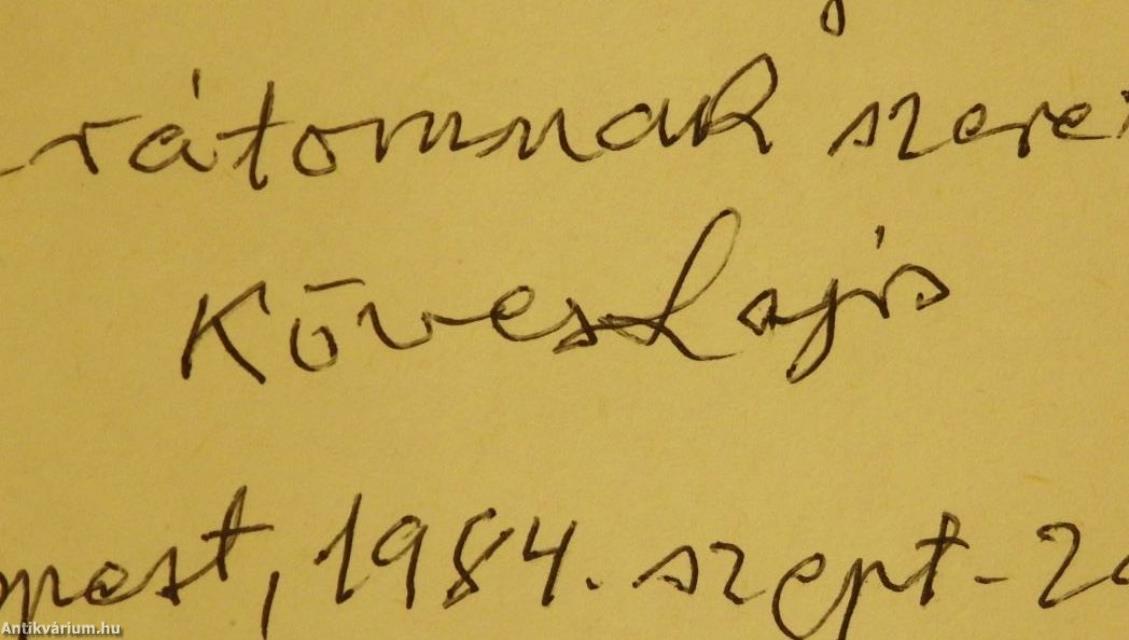 rátomnak szere
Köves Lajos
pest, 1984. szept-20
Antikvárium.hu